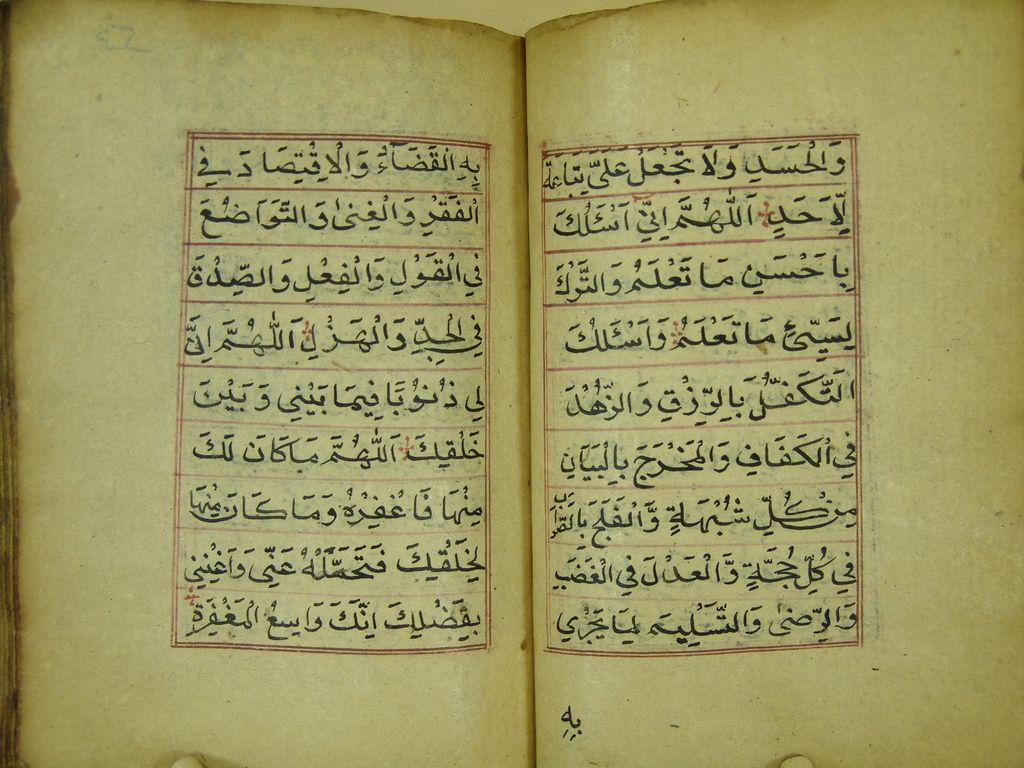 وَالْحَسَدِ وَلَا تَجْعَلْ عَلَيَّ تِبَاعَةً
لِاَحَدٍ اَللّٰهُمَّ اِنِّيْ اَسْئَلُكَ
بِاَحْسَنِ مَا تَعْلَمُ وَالتَّرْكَ
لِسَيِّئِ مَا تَعْلَمُ وَاَسْئَلُكَ
التَّكَفُّلَ بِالرِّزْقِ وَالزُّهْدَ
فِي الْكَفَافِ وَالْمَخْرَجَ بِالْبَيَانِ
مِنْ كُلِّ شُبْهَةٍ وَّالْفَلَجَ بِالصَّوَابِ
فِي كُلِّ حُجَّةٍ وَّالْعَدْلَ فِي الْغَضَبِ
وَالرِّضٰى وَالتَّسْلِيْمَ لِمَا يَجْرِي
بِهِ
بِهِ الْقَضَآءُ وَالْاِقْتِصَادَ فِي
الْفَقْرِ وَالْغِنٰى وَالتَّوَاضُعَ
فِي الْقَوْلِ وَالْفِعْلِ وَالصِّدْقَ
فِي الْجِدِّ وَالْهَزْلِ اَللّٰهُمَّ اِنَّ
لِي ذُنُوْبًا فِيْمَا بَيْنِي وَبَيْنَكَ وَذُنُوْبًا فِيْمَا بَيْنِي وَبَيْنَ
خَلْقِكَ اَللّٰهُمَّ مَا كَانَ لَكَ
مِنْهَا فَاغْفِرْهُ وَمَا كَانَ مِنْهَا
لِخَلْقِكَ فَتَحَمَّلْهُ عَنِّي وَاَغْنِنِي
بِفَضْلِكَ اِنَّكَ وَاسِعُ الْمَغْفِرَةِ